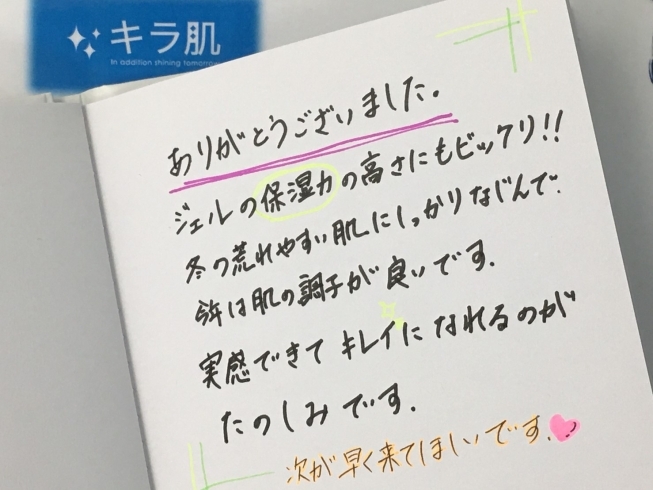 キラ肌
In addition shining tomorrow
ありがとうございました。
ジェルの保湿力の高さにもビックリ!!
冬の荒れやすい肌にしっかりなじんで、
今年は肌の調子が良いです。
実感できてキレイになれるのが
たのしみです。
次が早く来てほしいです。